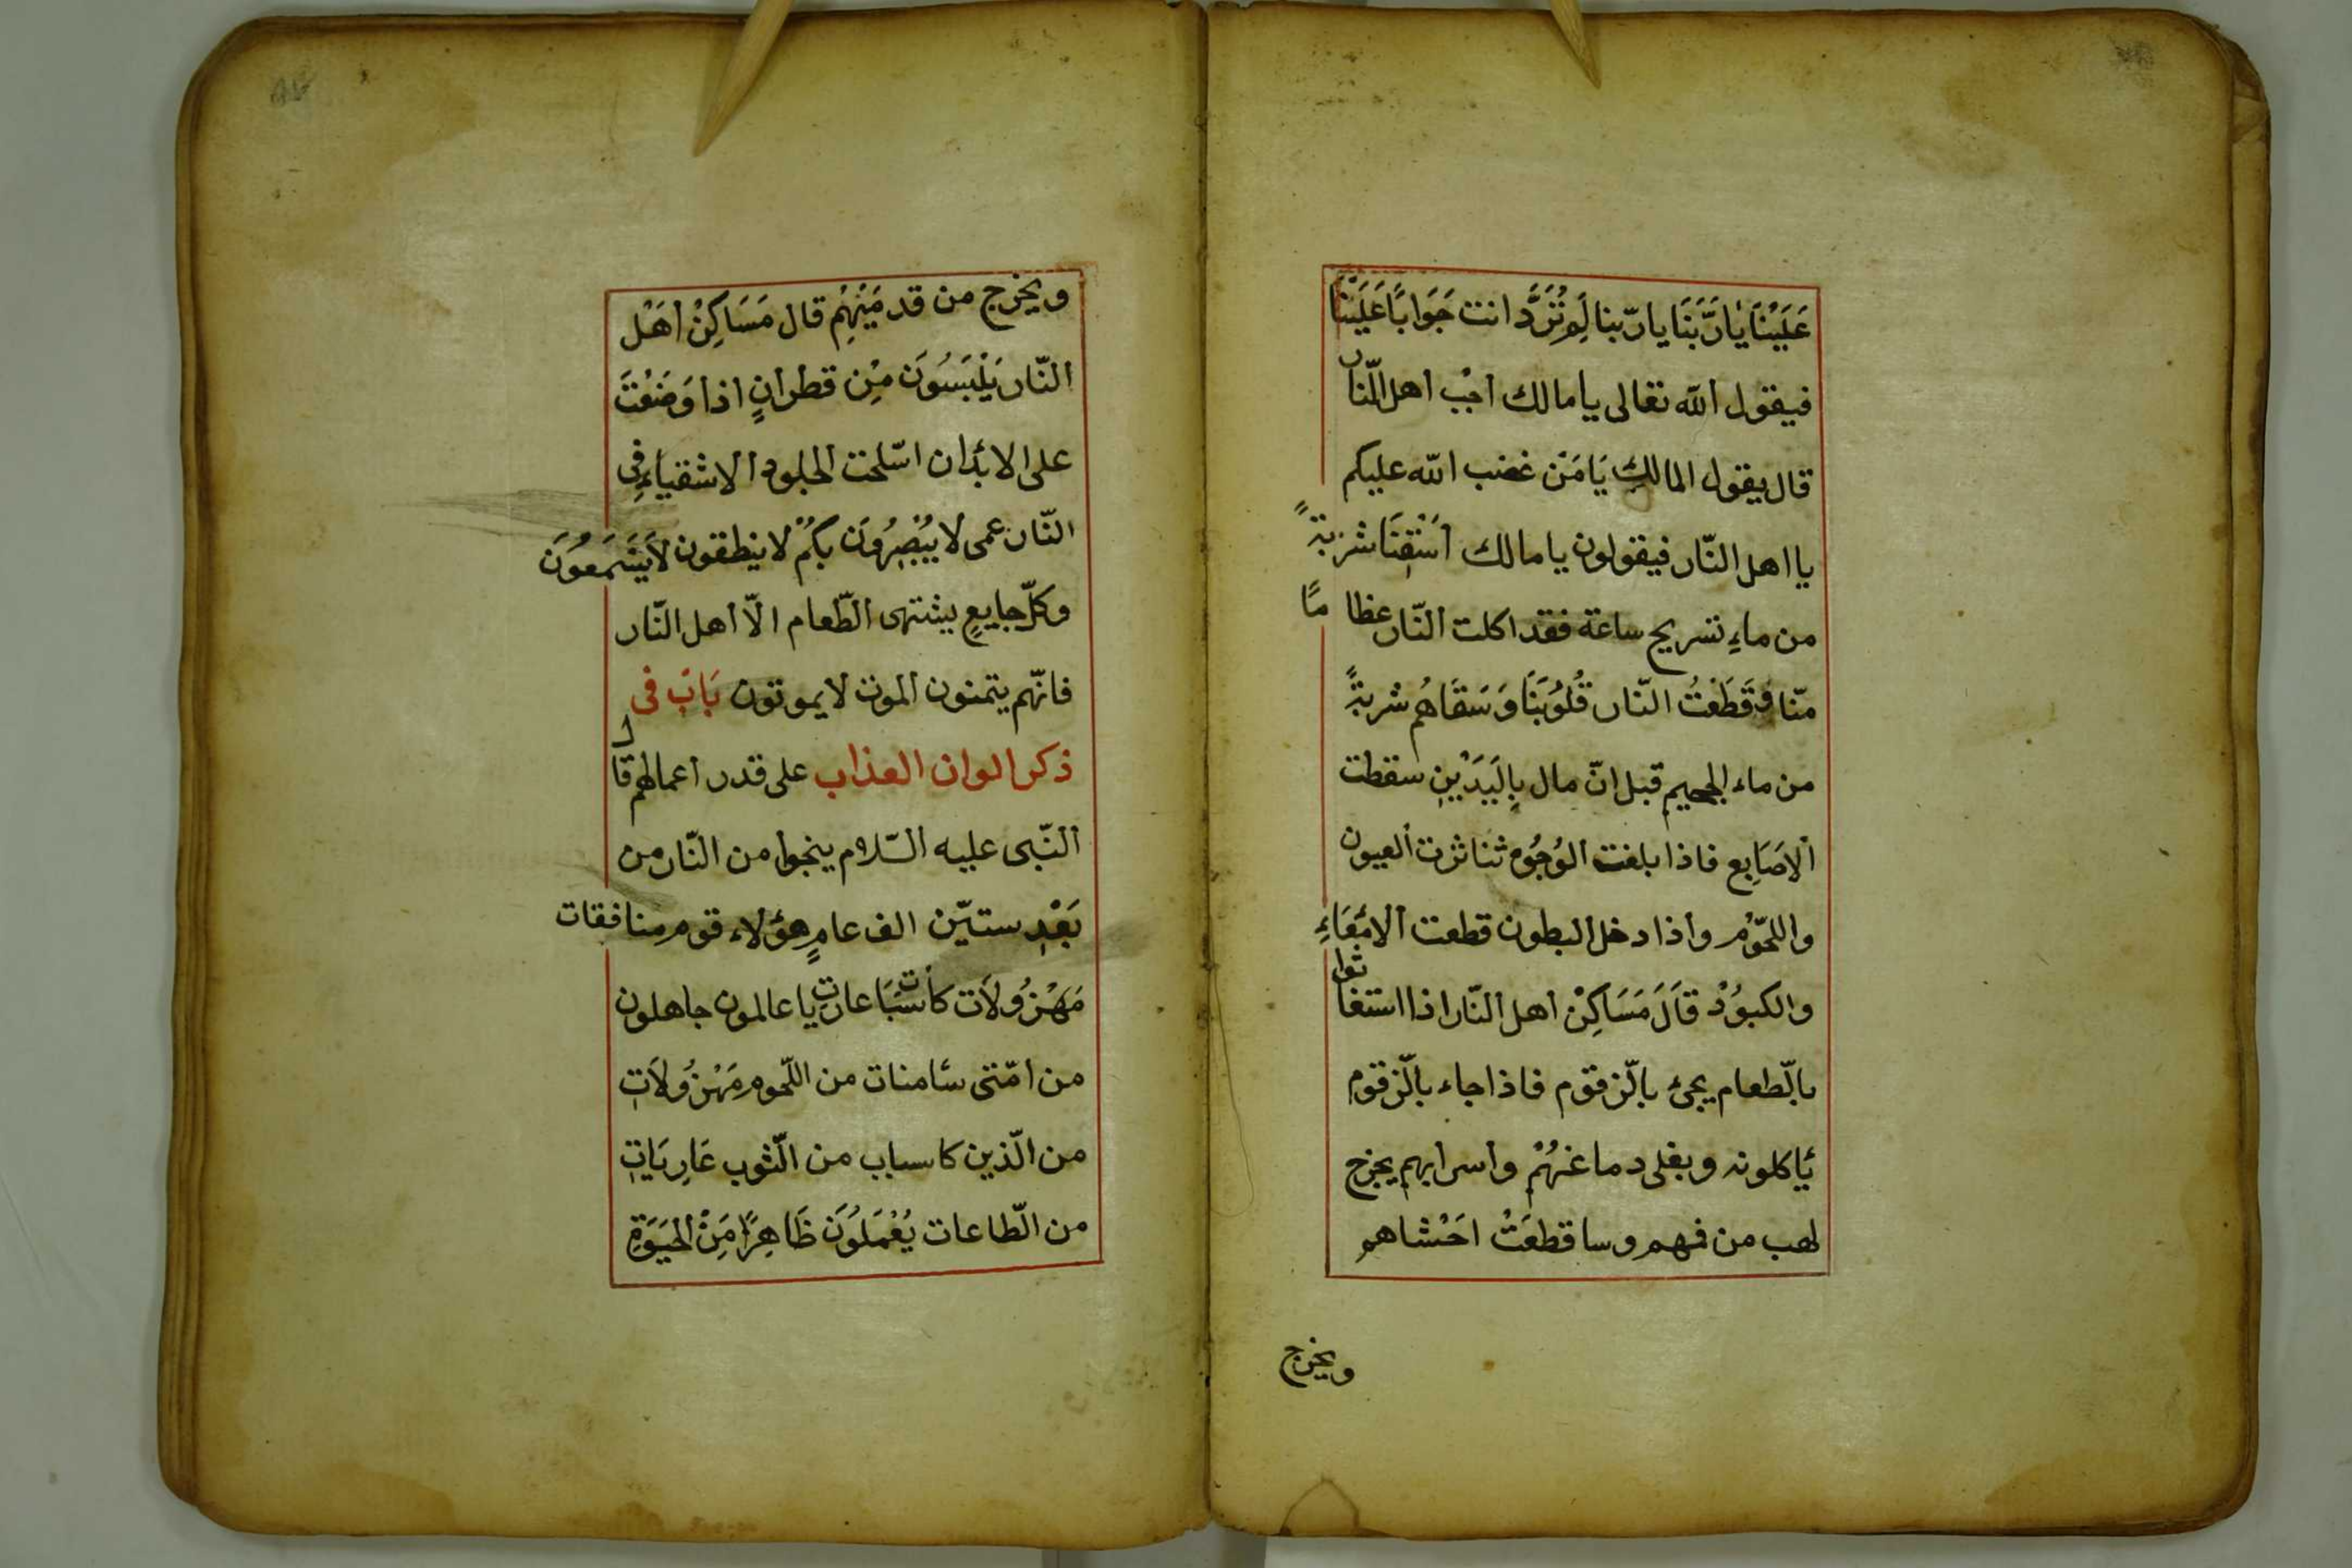 عَلَيْنَا يٰارَبَّنَا يا ربّنا لِمَ تُرَدَّ انت جَوَابًا عَلَيْنَا
فيقول الله تعالى يا مالك اجْب اهل النّار
قال يقول المالك يَا مَنْ غضب الله عليكم
يا اهل النّار فيقولون يا مالك اَسْقِنَا شربةً
من ماءٍ نسريح ساعة فقد اكلت النّار عظامًا
منّا فَقَطَعْتُ النّار قُلُوُبَنَا وَسَقَاهُم شربةً
من ماء الجحيم قبل انّ مال بِالَيَدَيْنِ سقطت
الاصَابِع فاذا بلغت الوُجُوُه ثناثرت العيون
واللحّوُم واذا دخل البطون قطعت الامْعَاءِ
والكبوُدْ قَالَ مَسَاكِنْ اهل النّار اذا استغاثوا
بالّطعام يجئ بالّزقوم فاذا جاء بالّزقوم
ئاكلونه ويغلى دماغهُمْ واسرابهم يخرج
لهب من فمهم وساقطعَتْ احَشْاهم
ويخرج
ويخرج من قدمَيْهِمْ قال مَسَاكِنْ اَهْل
النّار يَلْبَسُوَن مِن قطرانٍ اذا وَضَعْتَ
على الابدٔان اسّلخت الجلود الاشقياءِ فِى
النّار عمى لا يُبْصِرُوَن بكمٌ لا ينطقون لاَ يَسْمَعُوَن
وكلّ جايعٍ يشتهى الطّعام الاّ اهل النّار
فانّهم يتمنون الموت لا يموتون بَابَ فى
ذكر الوان العذاب على قدر اعمالهم قال
النّبى عليه السّلام ينجوا من النّار من
بَعْدِ ستيّن الف عامٍ هؤلاء قوم منافقات
مَهْزُولاَت كأسَبَات عاريات يا عالمون جاهلون
من امّتى سٔامنات من اللّحوم مَهْزُولاَتِ
من الّذين كاسباب من الثّوب عَارِيَاتِ
من الطّاعات يُعْمَلُوَن ظَاهِرًا مَِنْ الحَيَوَةِ